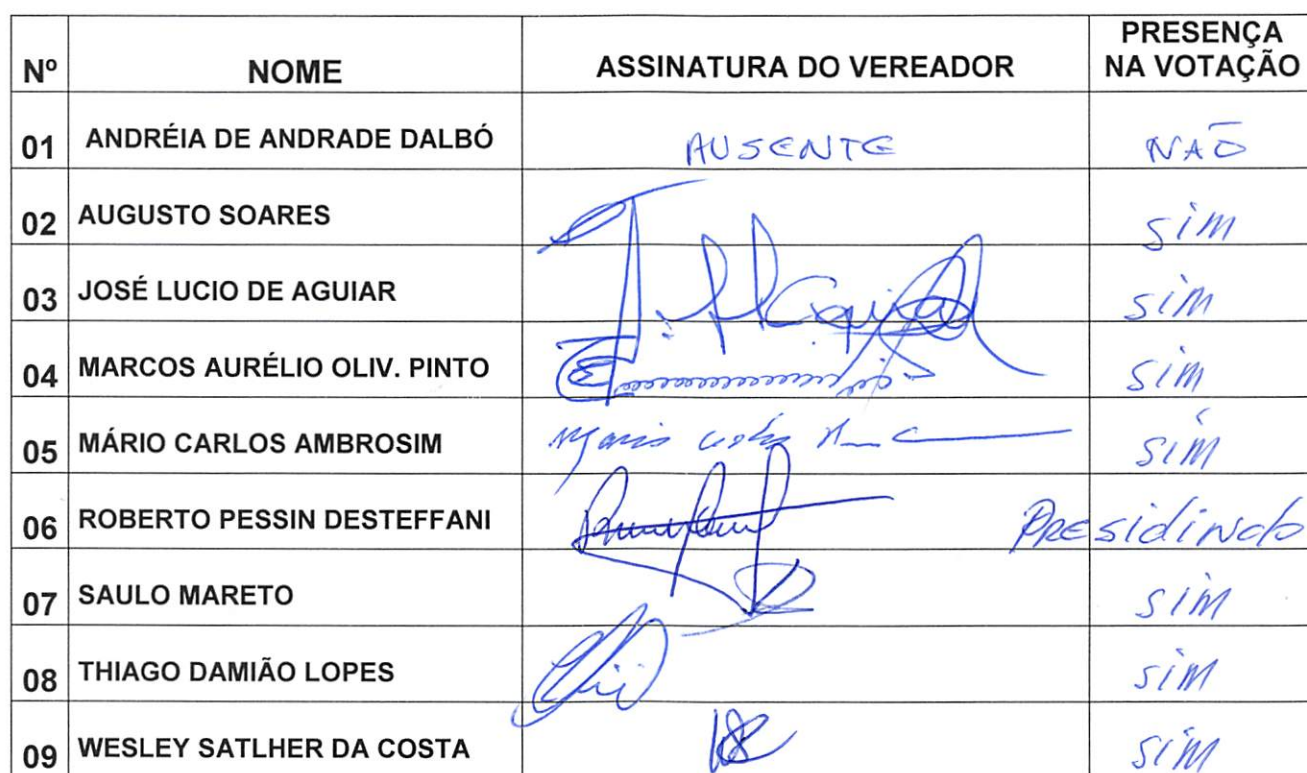 Nº NOME ASSINATURA DO VEREADOR PRESENÇA NA VOTAÇÃO
01 ANDRÉIA DE ANDRADE DALBÓ AUSENTE NÃO
02 AUGUSTO SOARES sim
03 JOSÉ LUCIO DE AGUIAR sim
04 MARCOS AURÉLIO OLIV. PINTO sim
05 MÁRIO CARLOS AMBROSIM sim
06 ROBERTO PESSIN DESTEFFANI Presidindo
07 SAULO MARETO sim
08 THIAGO DAMIÃO LOPES sim
09 WESLEY SATLHER DA COSTA sim